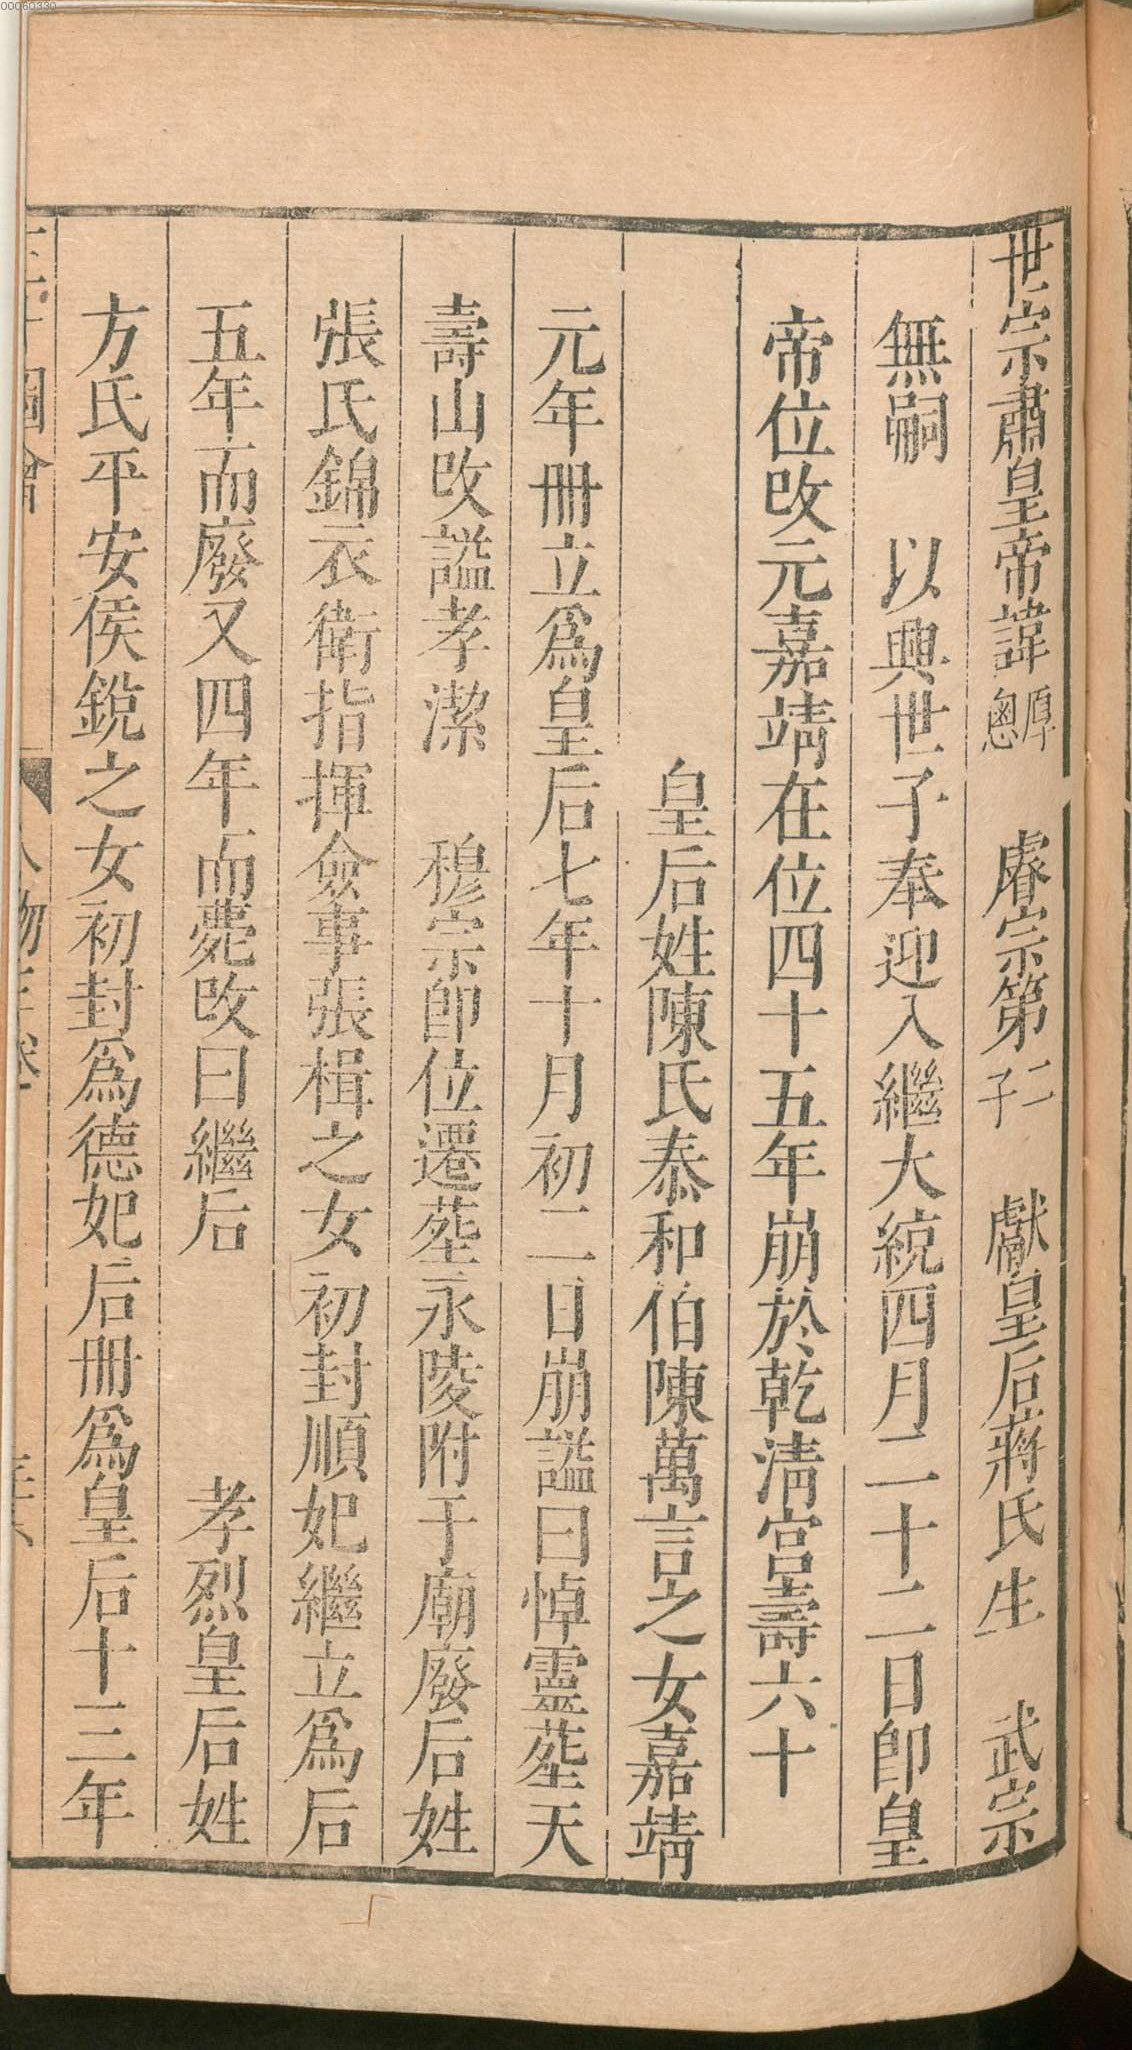 世宗肅皇帝諱厚熜　睿宗第二子　獻皇后蔣氏生　武宗
無嗣　以興世子奉迎入繼大統四月二十二日即皇
帝位改元嘉靖在位四十五年崩於乾清宮壽六十
皇后姓陳氏泰和伯陳萬言之女嘉靖
元年冊立爲皇后七年十月初二日崩謚曰悼靈塟天
壽山改謚孝潔　穆宗即位遷塟永陵附于廟廢后姓
張氏錦衣衛指揮僉事張楫之女初封順妃繼立爲后
五年而廢又四年而薨改曰繼后　孝烈皇后姓
方氏平安侯銳之女初封爲德妃后冊爲皇后十三年
圖會　人物三卷
00060330